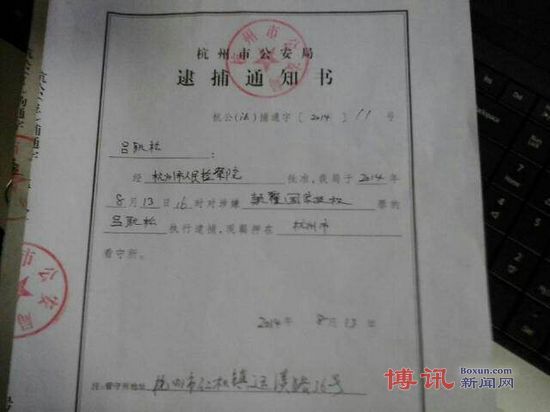 杭州市公安局
逮捕通知书
杭公(法)捕通字〔2014〕11号
吕耿松:
经杭州市人民检察院批准,我局于2014年
8月13日16时对涉嫌颠覆国家政权罪的
吕耿松执行逮捕,现羁押在杭州市
看守所。
2014年8月13日
注:看守所地址杭州市 镇运溪路 号
博讯 Boxun.com
新闻网